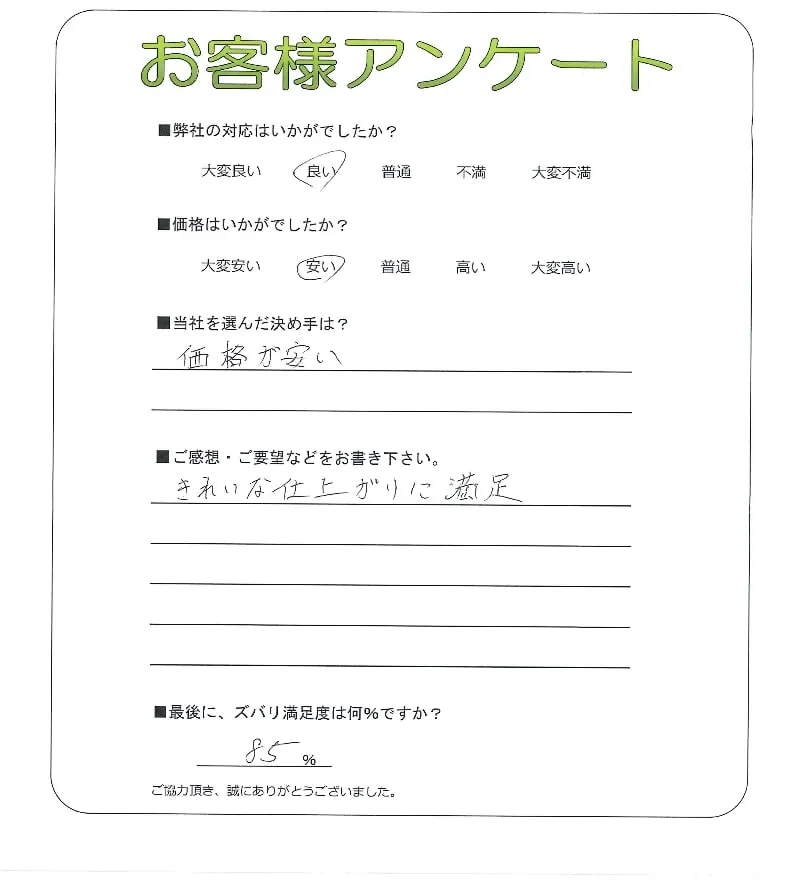 お客様アンケート
■弊社の対応はいかがでしたか？
大変良い 良い 普通 不満 大変不満
■価格はいかがでしたか？
大変安い 安い 普通 高い 大変高い
■当社を選んだ決め手は？
価格が安い
■ご感想・ご要望などをお書き下さい。
きれいな仕上がりに満足
■最後に、ズバリ満足度は何%ですか？
85 %
ご協力頂き、誠にありがとうございました。